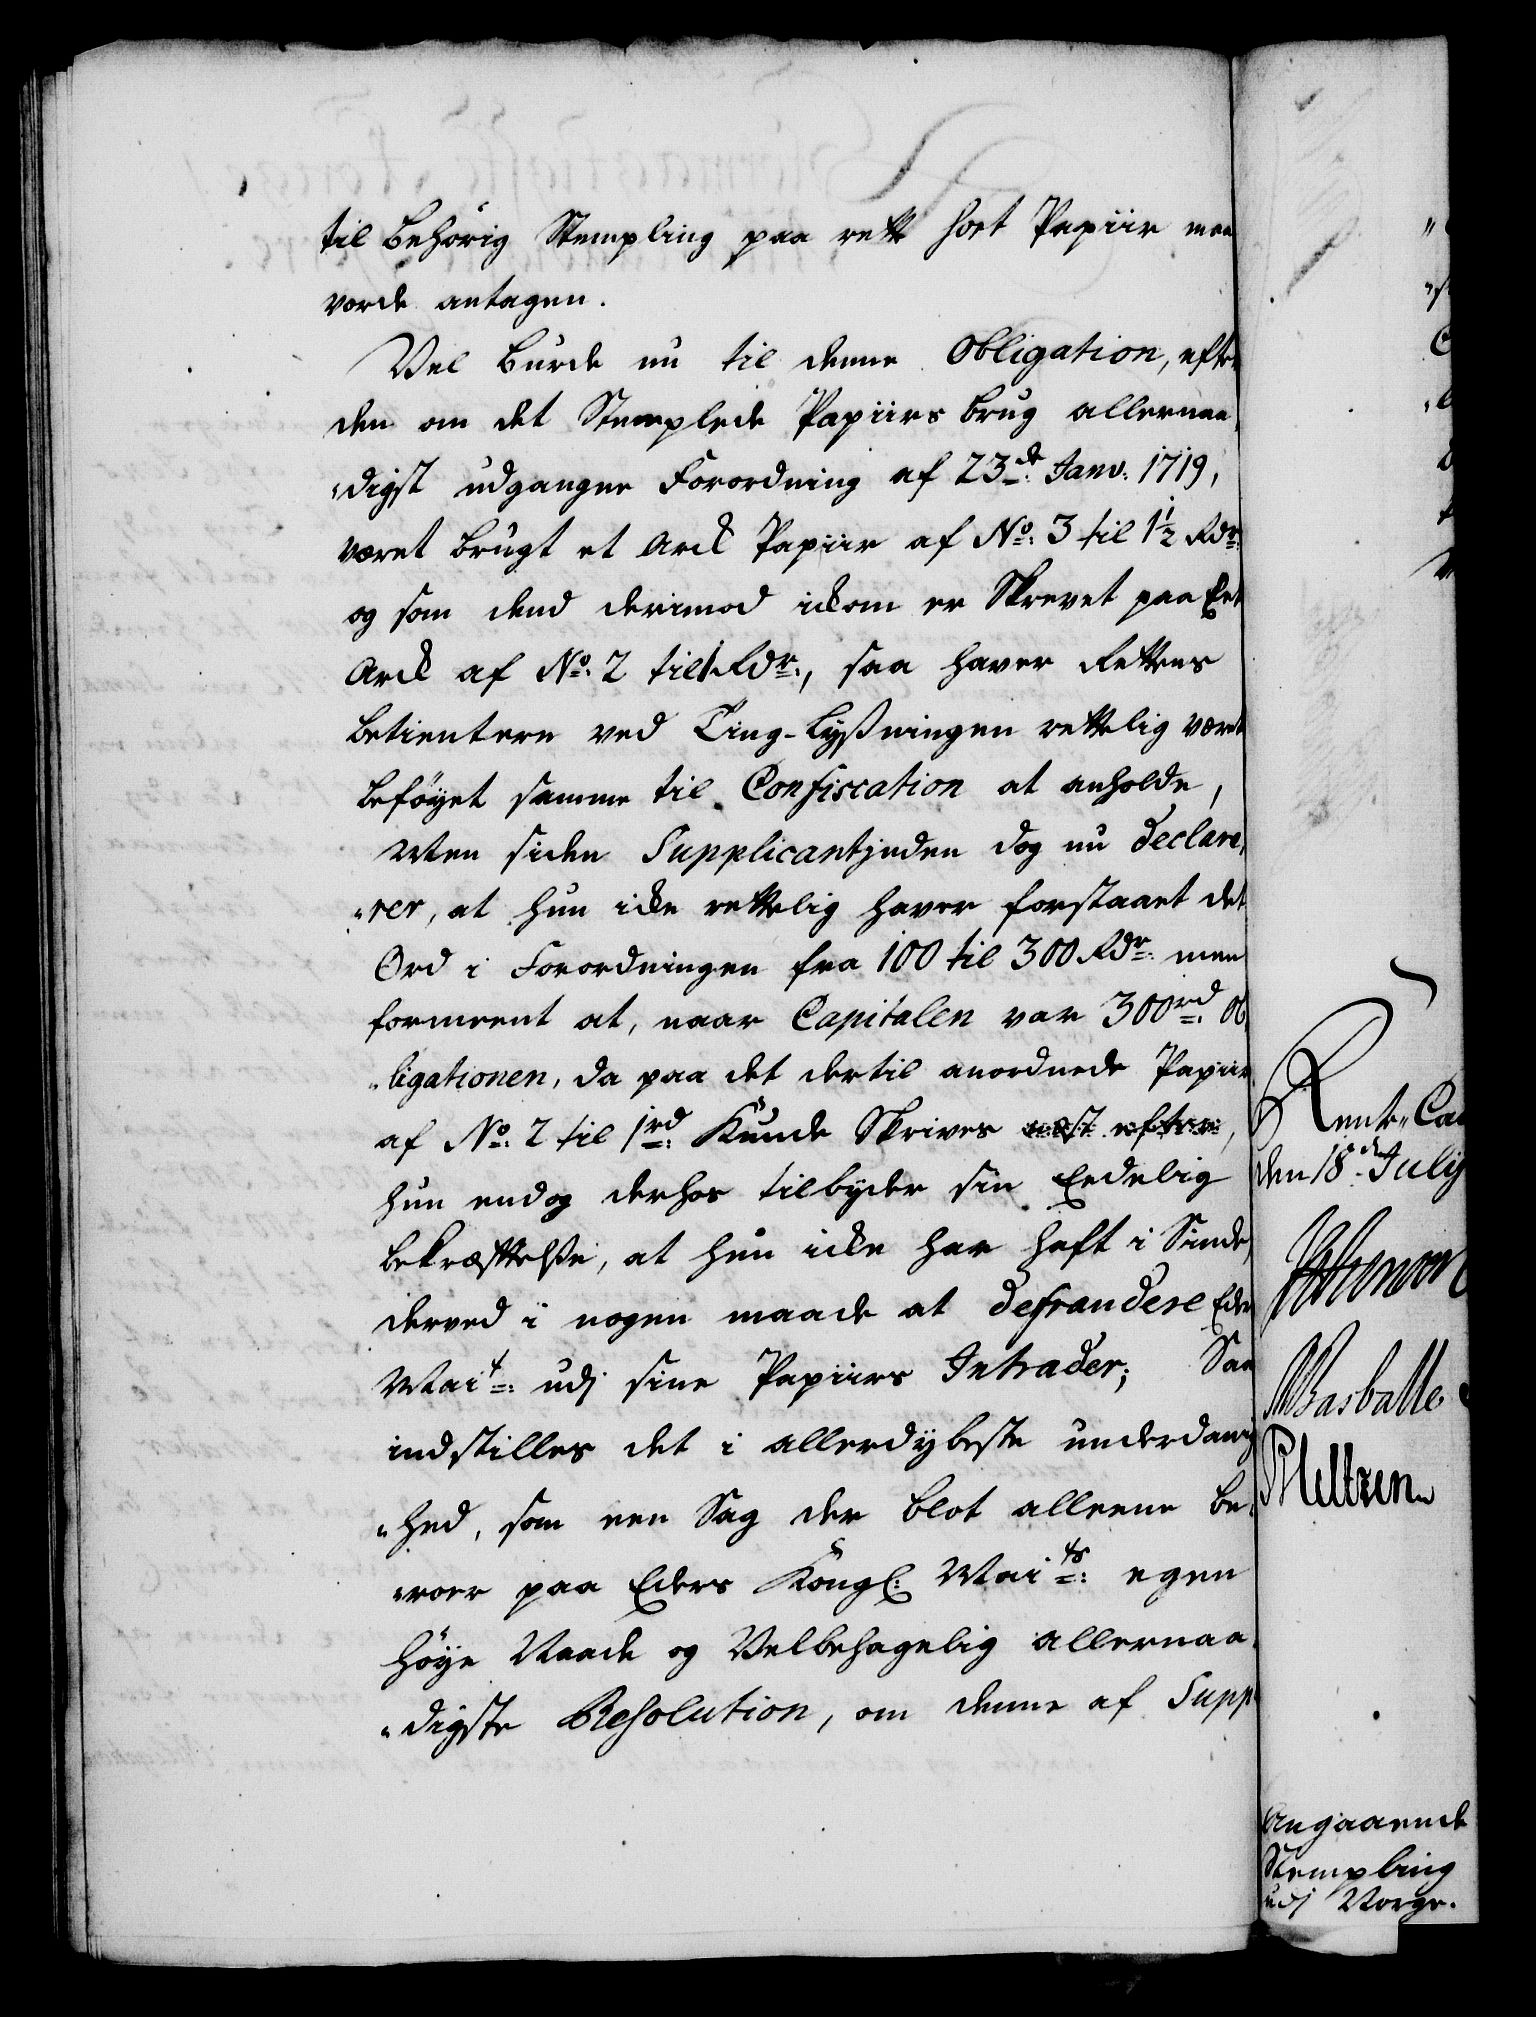 til behörig Stempling paa rett sort Papiir maa
vorde antagen.
Vel burde nu til denne Obligation, efter
den om det Stemplede Papiirs brug allernaa„
„digst udgangne Forordning af 23de: Janv: 1719,
været brugt et Arck Papiir af No: 3 til 1½ Rdr:
og som dend derimod ickun er Skrevet paa Eet
Arck af No: 2 til 1 Rdr:, saa haver Rettens
betientere ved Ting-Lyßningen rettelig været
beföyet samme til Confiscation at anholde,
Men siden Supplicantinden dog nu declare„
„rer, at hun icke rettelig haver forstaaet det
Ord i Forordningen fra 100 til 300 Rdr: men
formeent at, naar Capitalen var 300rd: Ob„
„ligationen, da paa det dertil anordnede Papiir
af No: 2 til 1rd: Kunde Skrives
hun endog derhos tilbyder sin Eedelig
bekræfttelße, at hun icke har haft i Sinde,
derved i nogen maade at defraudere Eders
Mait: udj sine Papiirs Intrader; Saa
indstilles det i allerdybeste underdanig
„hed, som een Sag der blot alleene be„
„roer paa Eders Kongl: Maits: egen
höye Naade og Velbehagelig allernaa„
„digste Resolution, om denne af Supp
Rente-Ca
den 18de July
Angaaende
Stempling
udj Norge.